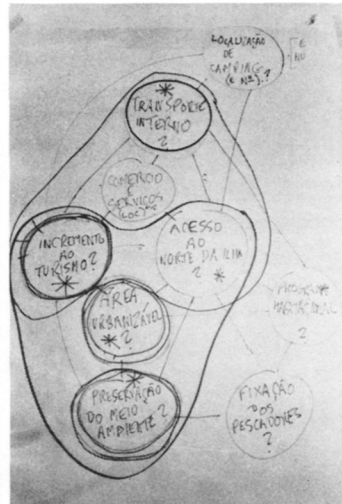 LOCALIZAÇÃO
DE
CAMPING
(E Nº).?
E
*
TRANSPORTE
INTERNO
?
COMÉRCIO
E
SERVIÇOS
INCREMENTO
AO
TURISMO?
*
ACESSO
AO
NORTE DA ILHA
? *
ÁREA
URBANIZÁVEL
* ?
?
*
PRESERVAÇÃO
DO MEIO
AMBIENTE?
FIXAÇÃO
DOS
PESCADORES
?